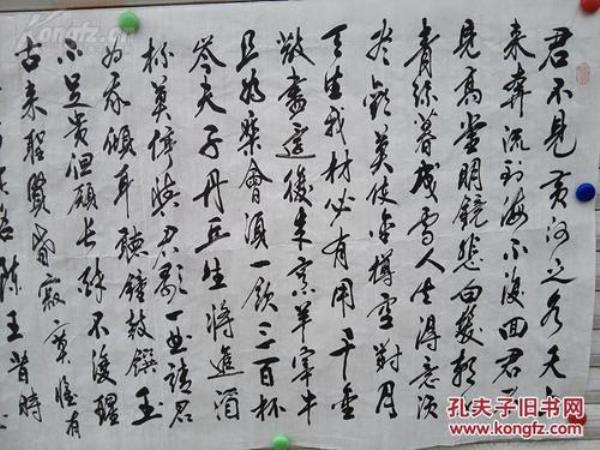 君不見黃河之水天上
来奔流到海不復回君
見高堂明鏡悲白髮朝
青絲暮成雪人生得意須
尽歡莫使金樽空對月
天生我材必有用千金
散盡還復来烹羊宰牛
且為樂會須一飲三百杯
岑夫子丹丘生將進酒
杯莫停與君歌一曲請君
為我傾耳聽鐘鼓饌玉
不足貴但願長醉不復醒
古来聖賢皆寂寞惟有
名陳王昔時
孔夫子旧书网
www.kongfz.com